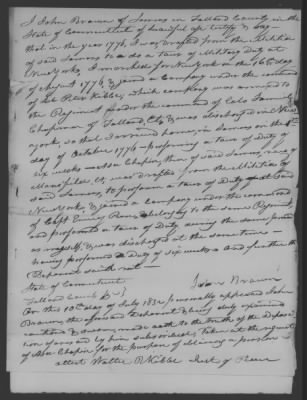 I John Brown of Somers in Tolland County in the
State of Connecticut of lawful age testify & say
that in the year 1776, I was drafted from the Militia
of said Somers to do a tour of Military Duty at
New York, I marched for New York on the 16th day
of August 1776 & joined a Company under the command
of Lt Kibbe, which company was annexed to
the Regiment under the command of Colo
Chapman of Tolland, Ct, & was discharged in New
york, so that I arrived home, in Somers, on the
day of October 1776 performing a tour of Duty of
six weeks Chapin, then of said Somers, now of
Ct, was drafted from the Militia of
said Somers, to perform a tour of Duty at said
New York & joined a Company under the command
of Capt & belong to the same Regiment,
and performed a tour of Duty during the same period
as myself & was discharged at the same time
having performed a Duty of six weeks and further the
Deponent saith not
John Brown
State of Connecticut
Tolland County
On the 10th day of July 1832 personally appeared John
Brown, the aforesaid Deponent & being duly
cautioned & sworn, made oath to the truth of the Deposi
tion by him subscribed, Taken at the request
of Chapin for the purpose of obtaining a pension
attest Walter R Kibbe Just of Peace